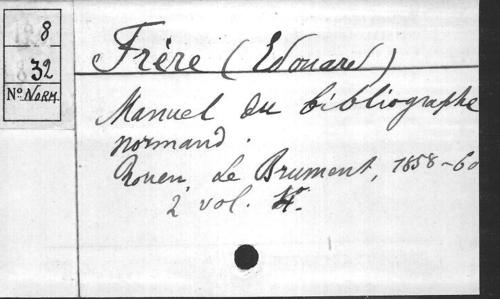 8
32
N° NORM.
Frère (Edouard)
Manuel du bibliographe
normand.
Rouen, Le Brument, 1858-60
2 vol. 4°.